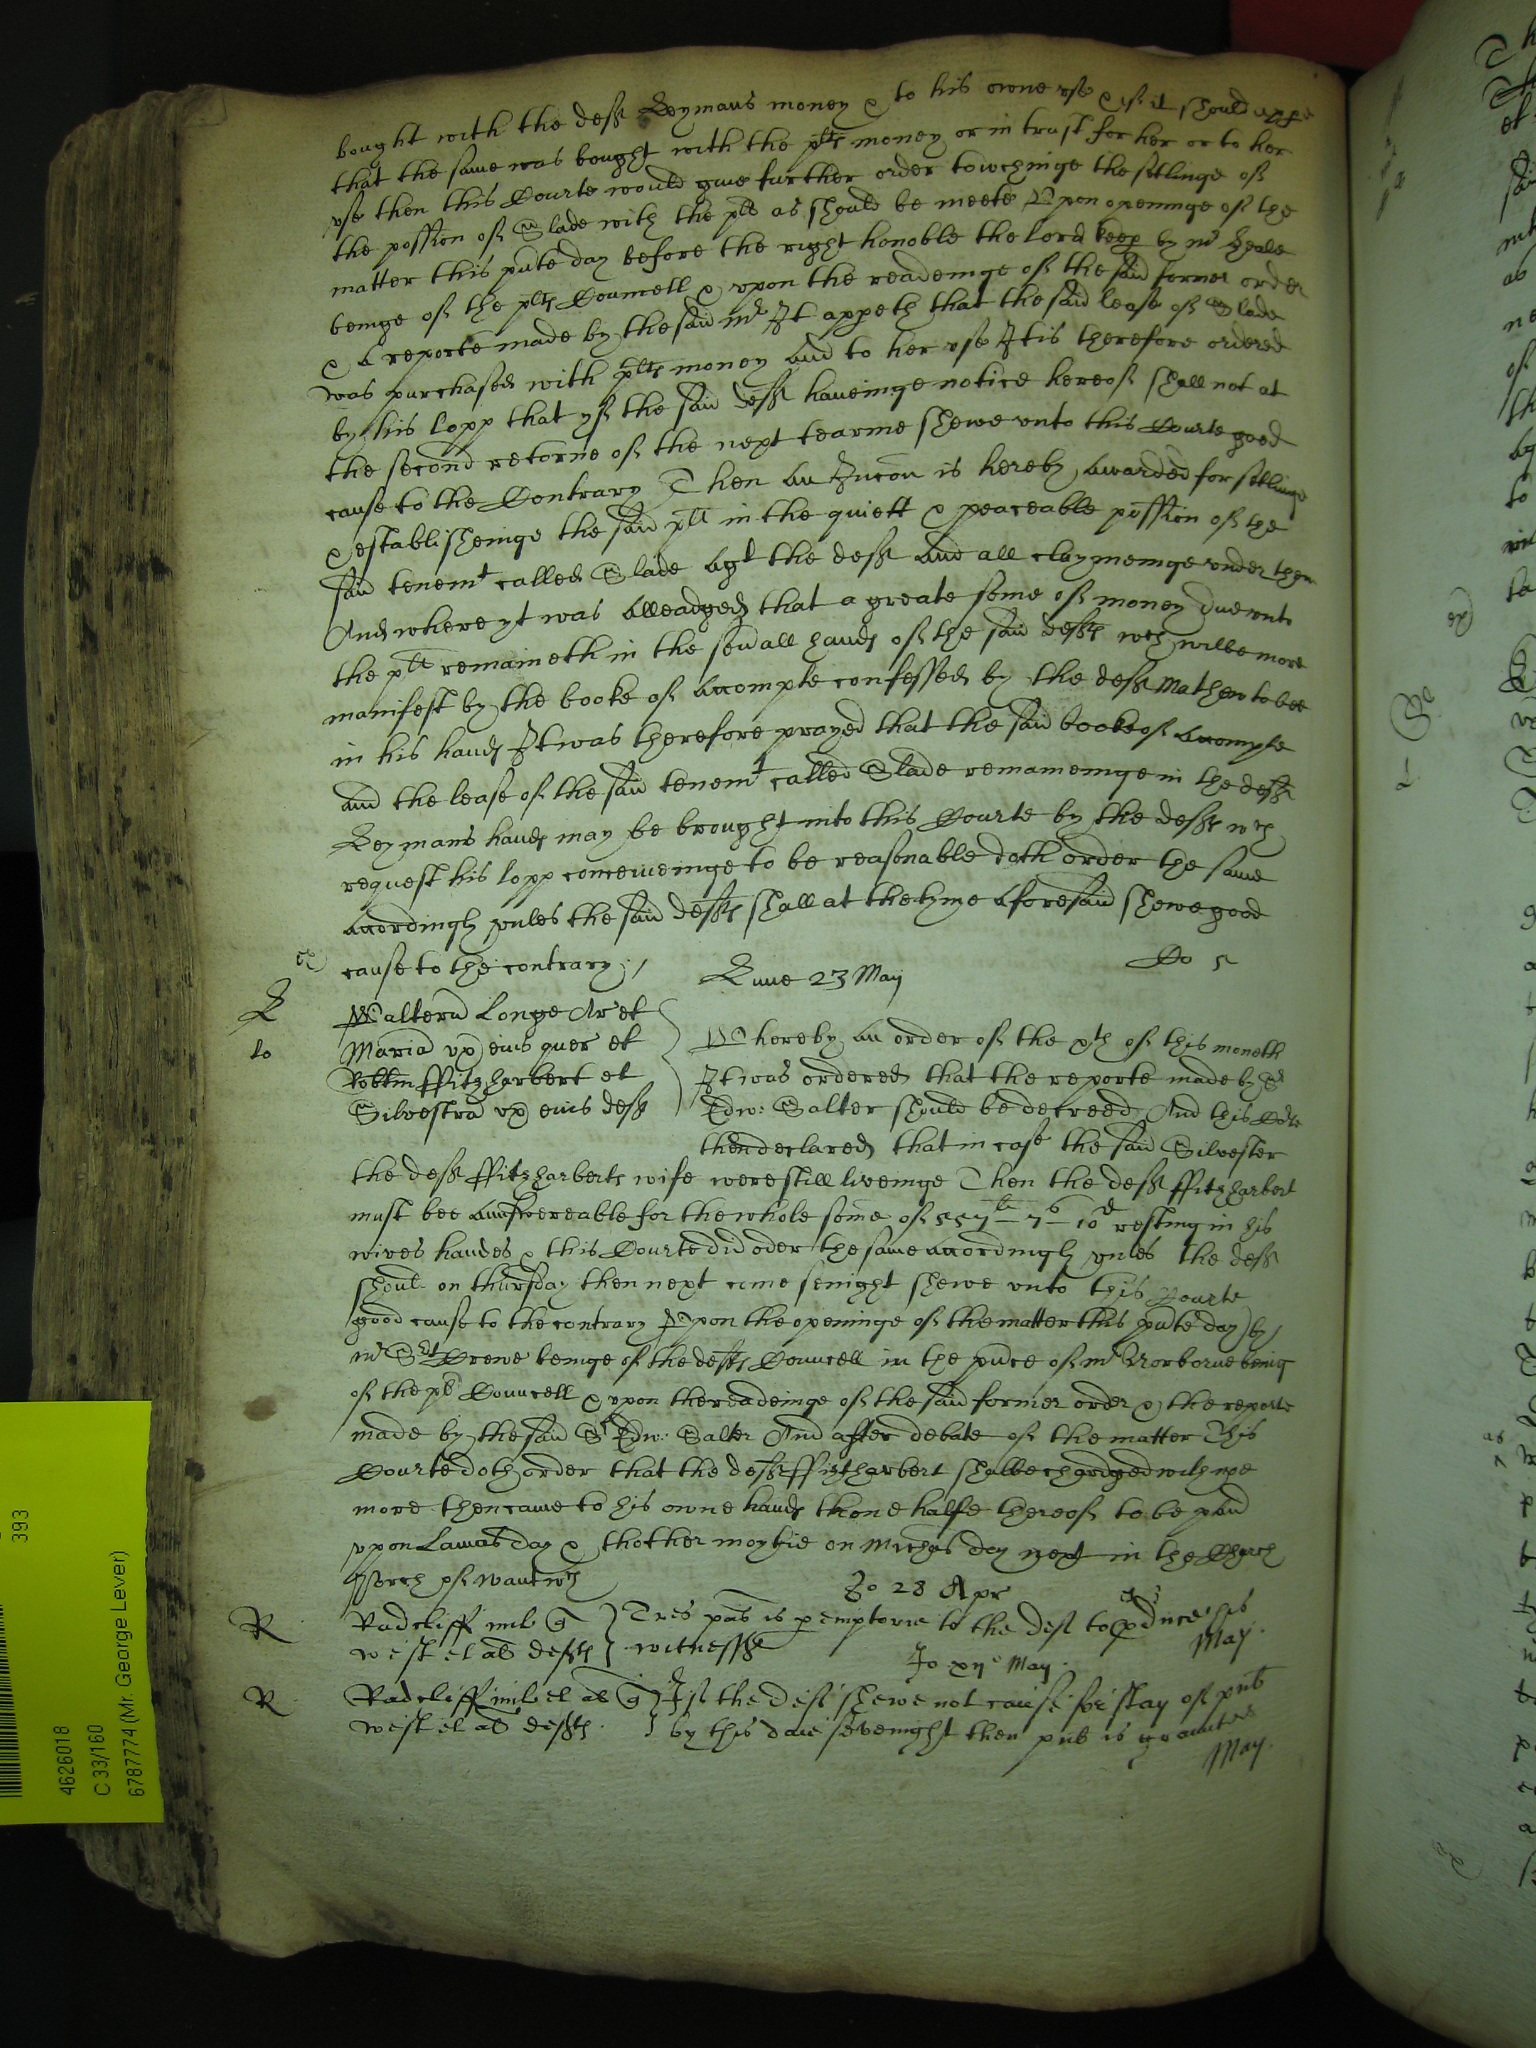 bought with the deft Leymans money & to his owne vse & if it should appe
that the same was bought with the plts money or in trust for her or to her
vse then this Courte would giue further order towchinge the setlinge of
the possion of Slade with the plt as should be meete Vpon openinge of the
matter this pnte day before the right honoble the lord keep by mr Heale
beinge of the plts Councell & vpon the readeinge of the said former order
& A reporte made by the said mr It appeth that the said lease of Slade
was purchased with plts money And to her vse It is therefore ordered
by his lopp that yf the said deft haueinge notice hereof shall not at
the second retorne of the next tearme shewe vnto this Courte good
cause to the Contrary Then An Iniucon is hereby Awarded for setlinge
& establisheinge the said plt in the quiett & peaceable possion of the
said tenemt called Slade Agt the deft And all claymeinge vnder them
And where yt was Alleadged that a greate some of money due vnto
the plt remaineth in the seuall hands of the said defts wch will be more
manifest by the booke of Accompte confessed by the deft Mathew to bee
in his hands It was therefore prayed that the said booke of Accompte
and the lease of the said tenemt called Slade remaineinge in the deft
Leymans hands may be brought into this Courte by the defts wch
request his lopp conceiueinge to be reasonable doth order the same
Accordingly vnles the said defts shall at the tyme Aforesaid shewe good
cause to the contrary /
Lune 23 May
Co 5
L
lo
Walterus Longe Ar et
Maria vx eius quer et
Robtm ffitzharbert et
Silvestra vx eius deft
Whereby An order of the xth of this moneth
It was ordered that the reporte made by Sr
Edw: Salter should be decreed And this Corte
then declared that in case the said Silvester
the deft ffitzharberts wife were still liveinge Then the deft ffitzharbert
must bee Aunswereable for the whole some of 557li - 7s - 10d resting in his
wives handes & this Courte did oder the same Accordingly vnles the deft
should on thursday then next come senight shewe vnto this Courte
good cause to the contrary Vpon the openinge of the matter this pnte day by
mr Srt Drewe beinge of the defts Councell in the pnce of mr Norborne being
of the pls Councell & vpon the readeinge of the said former order & the reporte
made by the said Sr Edw: Salter And after debate of the matter This
Courte doth order that the deft ffitzharbert shalbe chardged with noe
more then came to his owne hands thone halfe thereof to be paid
vpon Lamas day & thother moytie on Michas day next in the Church
Porch of
R
Radcliff mil q
West et al defts
Jo 28 Apr
Tres pas is peremptorie to the deft to pduce his
witnesses
May
R
Radcliff mil et al q
West et al defts
Jo xijo May
If the deft shewe not cause for stay of pub
by this daie sevenight then pub is graunted
May
4626018
C 33/160
6787774 (Mr. George Lever)
393